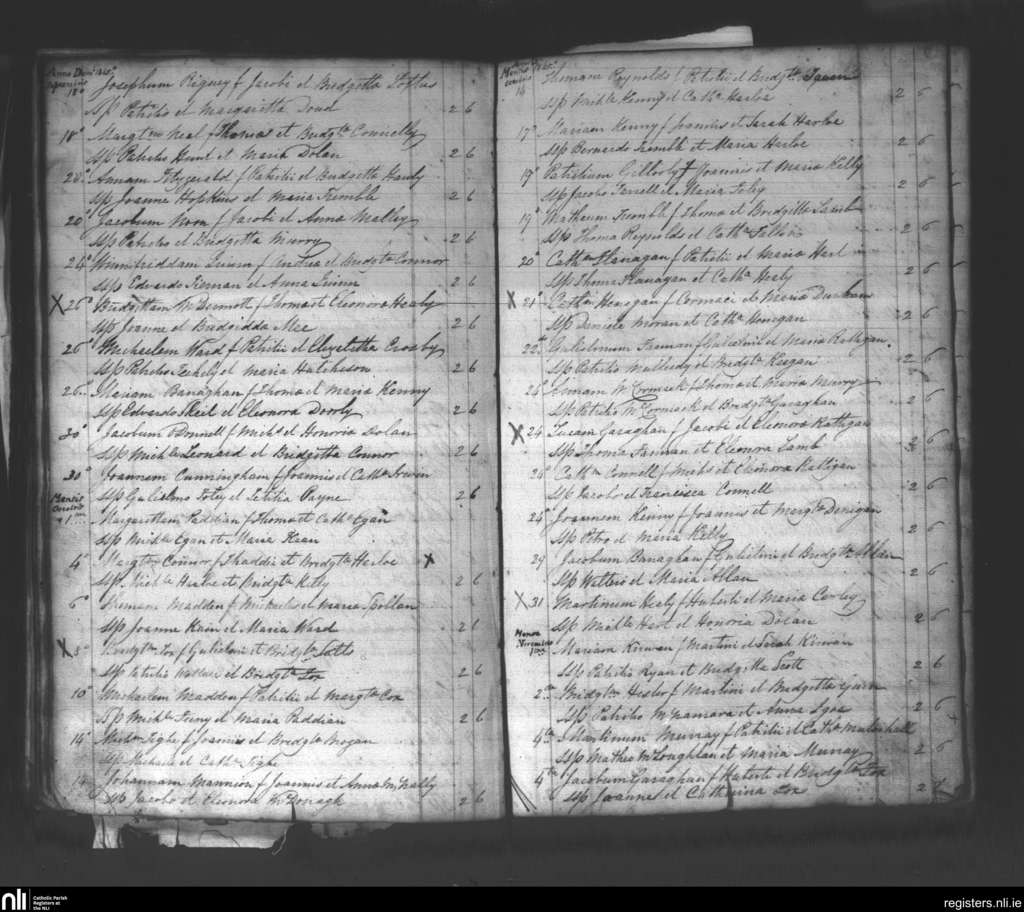 Anno Dom. 1845
18 Josephum Rigney f Jacobi et Bridgetta Loftus
Sp Patritio et Margaritta Doud
18 Margt Neal f Thomas et Bridgta Connelly 2 6
S/p Patritio Hunt et Maria Dolan
Annam Fitzgerald f Patritii et Bridgetta
S/p Joanne Hopkins et Maria Trimble 2 6
20 Jacobum f Jacobi et Anna Nally
S/p Patritio et Bridgetta 2 6
24 Winnifriddam f Andrea et Bridgta Connor
S/p Edwardo et Anna 2 6
X 26 Bridgettam McDermott f Thoma et Eleonora Healy
S/p Joanne et Bridgidda Mee 2 6
26 Michaelem Ward f Patritii et Elizabetha Crosby
S/p Patritio et Maria Hutcheson 2 6
26 Miriam Banaghan f Thoma et Maria Kenny
S/p Edwardo et Eleonora 2 6
30 Jacobum ODonnell f Michl et Honoria Dolan
S/p Michle Leonard et Bridgetta Connor 2 6
30 Joannem Cunningham f Joannis et Catha
S/p Gulielmo Foley et Letitia Payne 2 6
Mensis Octobris
1 Margarittam Paddian f Thoma et Catha Egan
S/p Michle Egan et Maria Kean
4 Margtm Connor f Thaddii et Bridgta Harloe X
S/p Michle Harloe et Bridgta Kelly 2 6
6 Thomam Madden f Michaelis et Maria
S/p Joanne et Maria Ward 2 6
X 8 Bridgtm Fox f Gulielmi et Bridgta
S/p Patritio Wallace et Bridgta Fox 2 6
10 Michaelem Madden f Patritii et Margta Cox
S/p Michle Feeny et Maria Paddian 2 6
14 Tighe f Joannis et Bridgta Brogan
S/p et Catha Tighe
14 Johannam Mannion f Joannis et Anna McNally
S/p Jacobo et Eleonora McDonagh 2 6
1845
Mensis Octobris
14 Thomam Reynolds f Patritii et Bridgta
S/p Michle Kenny et Catha Harloe 2 6
17 Mariam Kenny f Joannis et Sarah Harloe
S/p Bernardo Trimble et Maria Harloe 2 6
19 Patritium Gillooly f Joannis et Maria Kelly
S/p Jacobo Farrell et Maria Foley 2 6
19 Matheum Trimble f Thoma et Bridgetta Lamb
S/p Thoma Reynolds et Catha 2 6
20 Catha Flanagan f Patritii et Maria Hart
S/p Thoma Flanagan et Catha Healy 2 6
X 21 Catham Honegan f Cormaci et Maria Durkan
S/p Daniele Moran et Catha Honegan 2 6
22 Gulielmum Farnan f Gulielmi et Maria Rattigan
S/p Patritio Mulleedy et Bridgta Keegan 2 6
24 Annam McCormack f Thoma et Maria Murry
S/p Patritio McCormack et Bridgta Garaghan 2 6
X 24 Lucam Garaghan f Jacobi et Eleonora Rattigan
S/p Thoma Farnan et Eleonora Lamb 2 6
24 Catham Connell f Michs et Eleonora Rattigan
S/p Jacobo et Francisca Connell 2 6
24 Joannem f Joannis et Margta Dinigan
S/p Petro et Maria Kelly 2 6
29 Jacobum Banaghan f Gulielmi et Bridgta Allan
S/p Waltero et Maria Allan 2 6
X 31 Martinum Healy f Huberti et Maria Corley
S/p Michle Hart et Honoria Dolan 2 6
Mensis Novembris
1 Mariam Kirwan f Martini et Sarah Kirwan
S/p Patritio Ryan et Bridgetta Scott 2 6
2 Bridgtm Hester f Martini et Bridgetta
S/p Patritio McNamara et Anna 2 6
4th Martinum Murray f Patritii et Catha Mulvihall
S/p Matheo McLoughlan et Maria Murray 2 6
4th Jacobum Garaghan f Huberti et Bridgta Fox
S/p Joanne et Catherina Fox 2 6
nli
Catholic Parish
Registers at
the NLI
registers.nli.ie